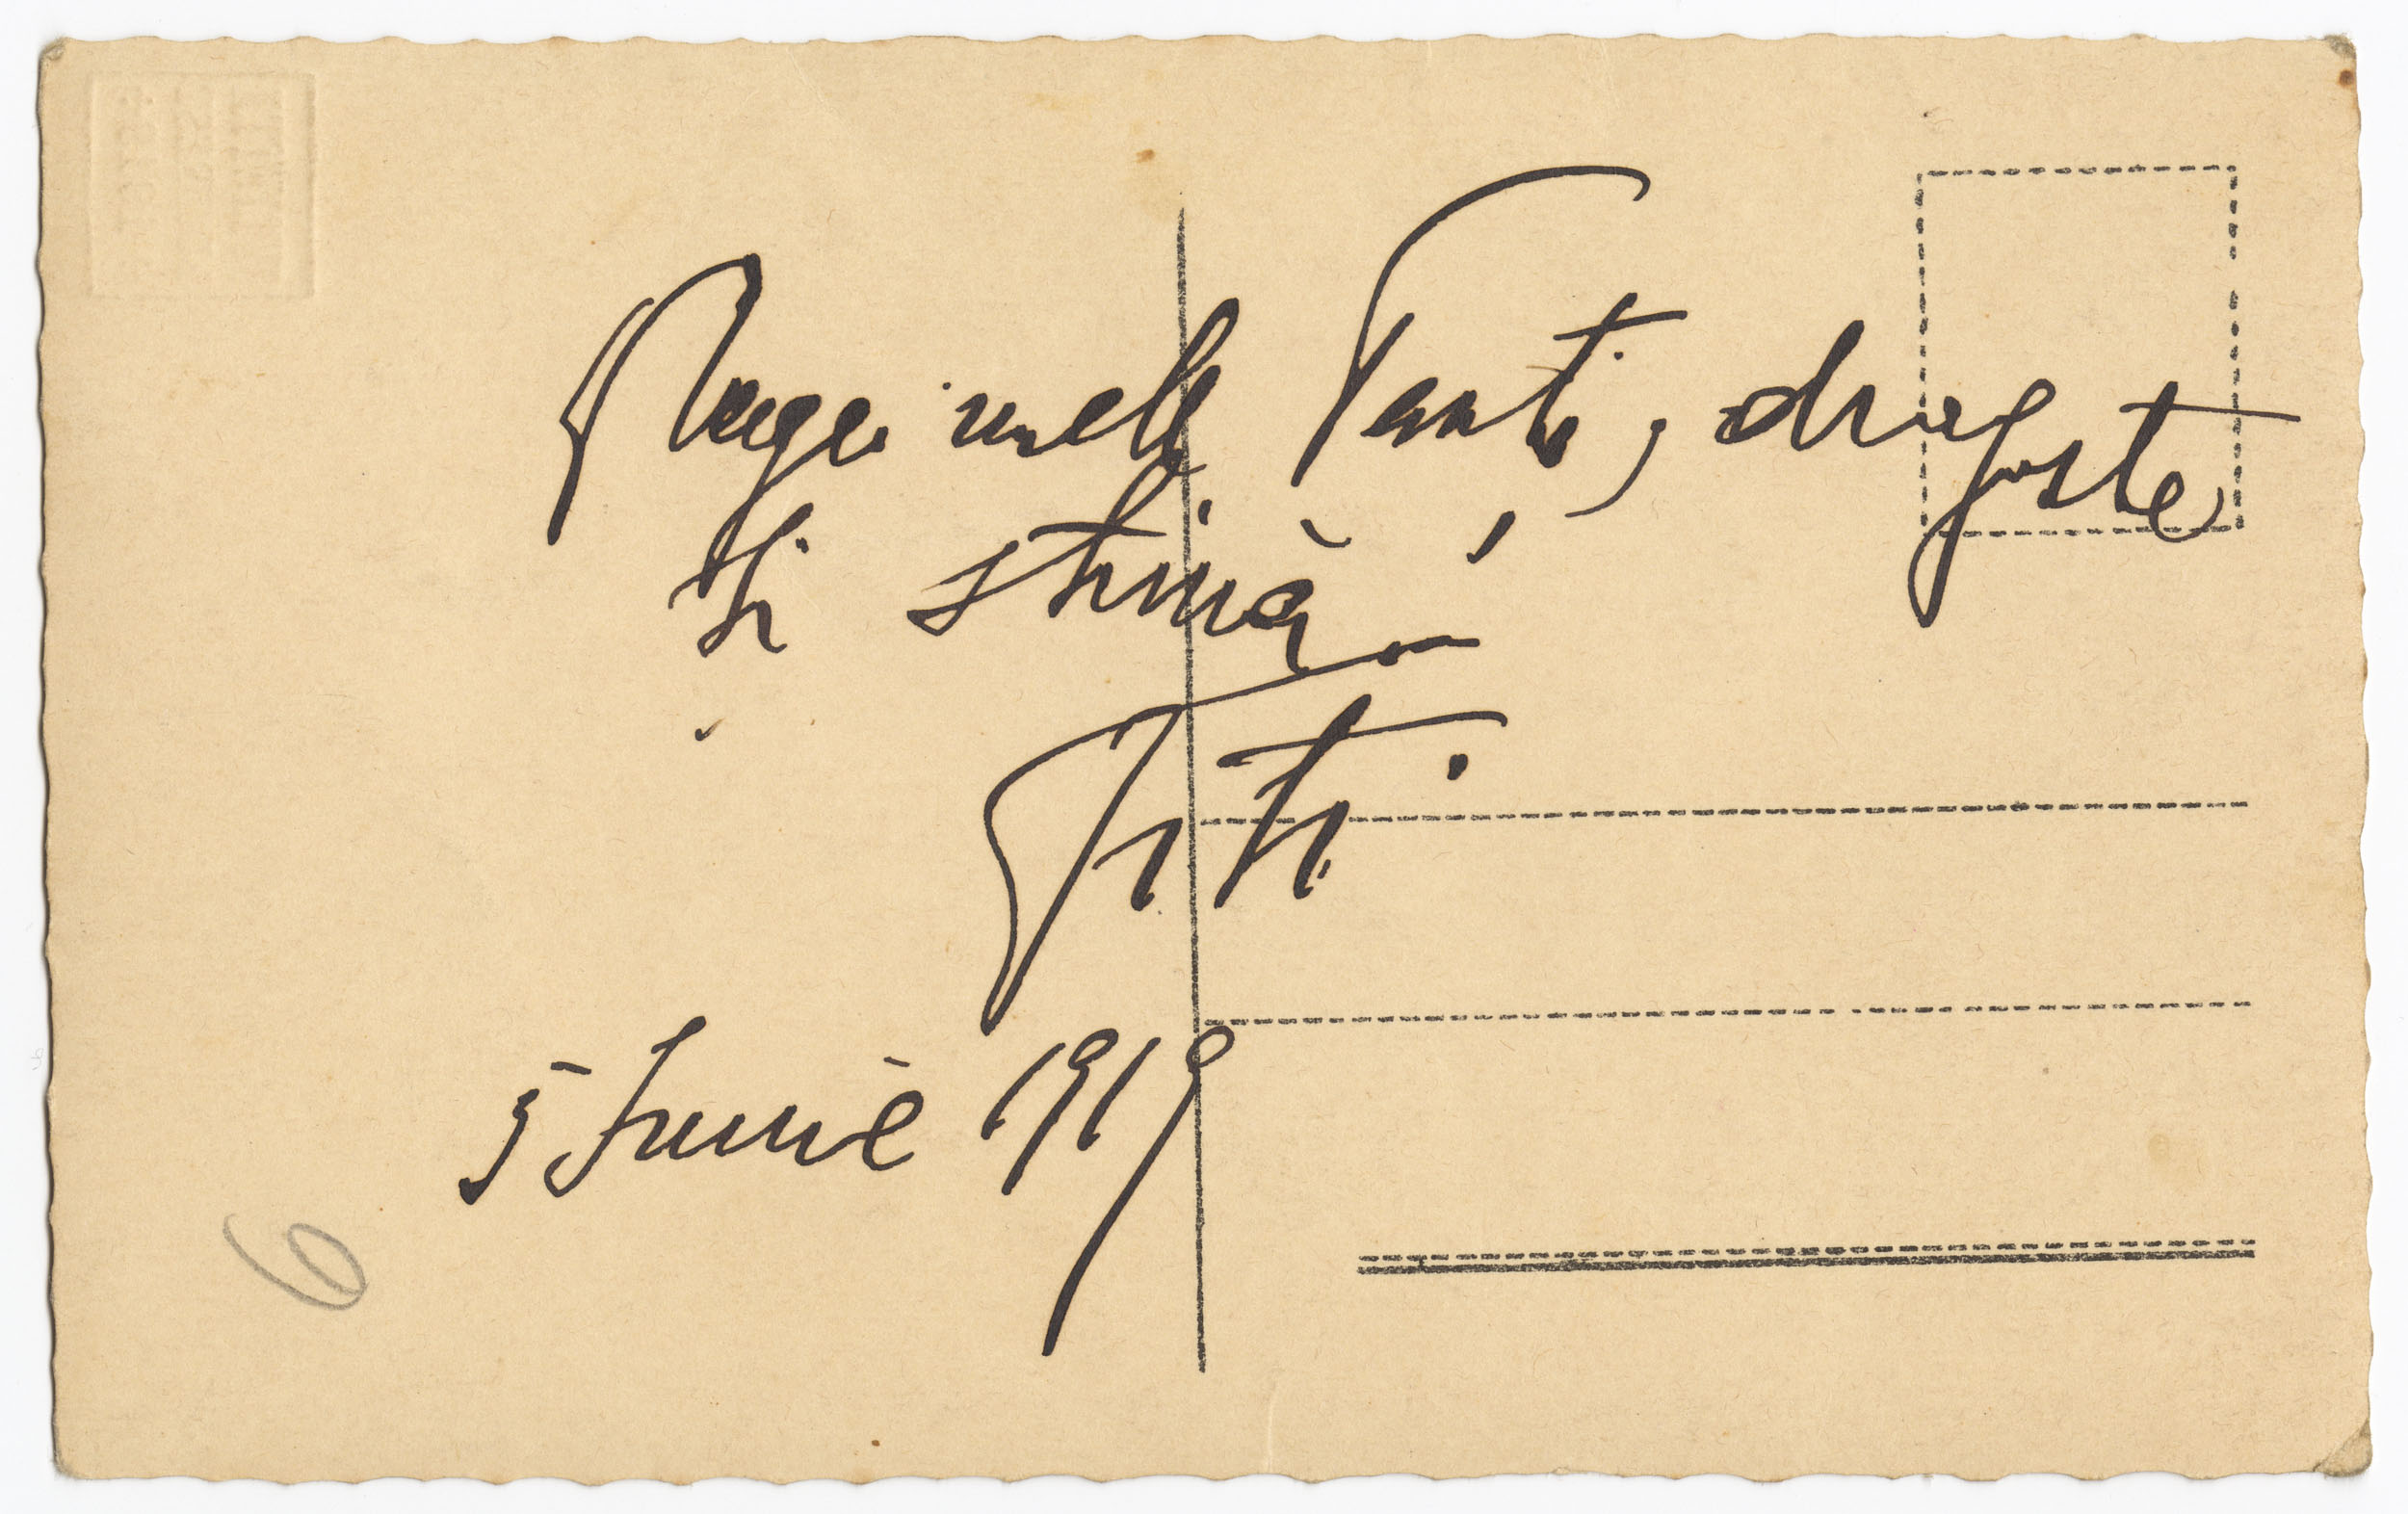 mele Tanti, dragoste
și stimă
Titi
5 Iunie 1919
6